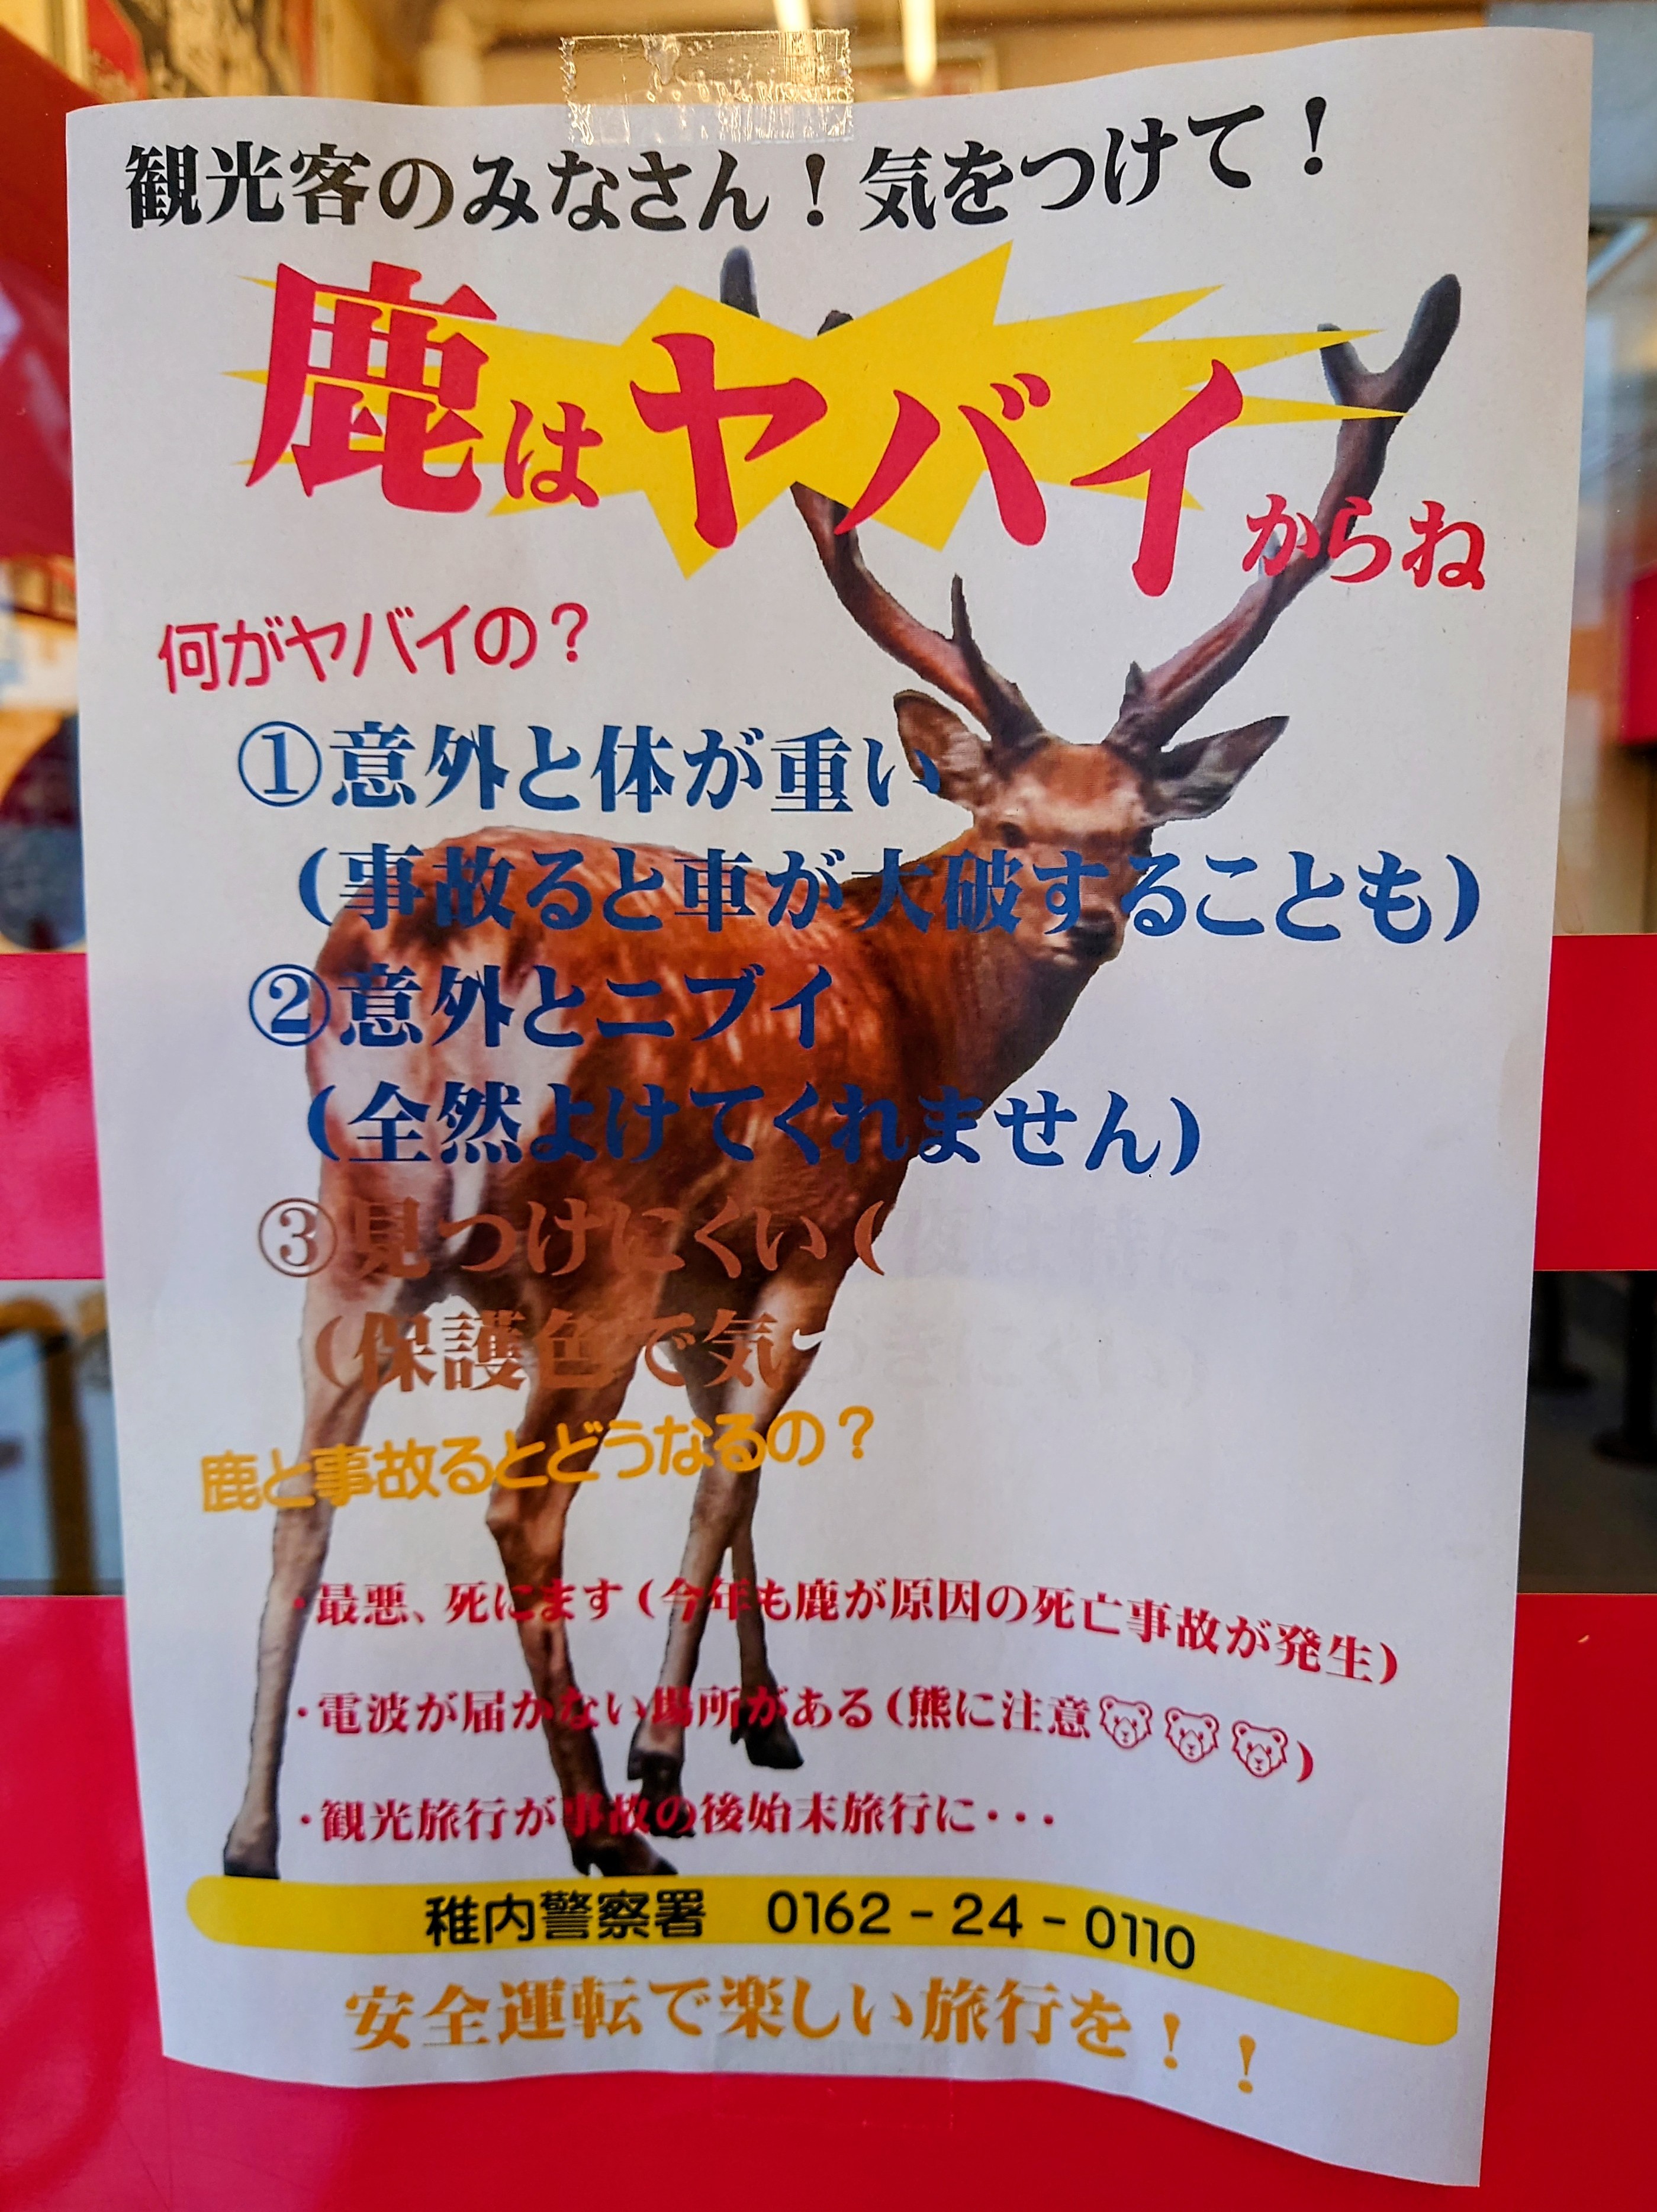 観光客のみなさん！気をつけて！
鹿はヤバイからね
何がヤバイの？
①意外と体が重い
（事故ると車が大破することも）
②意外とニブイ
（全然よけてくれません）
③見つけにくい（
（保護色で気づ
鹿と事故るとどうなるの？
・最悪、死にます（今年も鹿が原因の死亡事故が発生）
・電波が届かない場所がある（熊に注意）
・観光旅行が事故の後始末旅行に・・・
稚内警察署　0162-24-0110
安全運転で楽しい旅行を！！